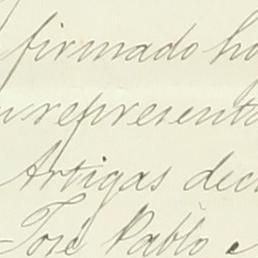 firmado ho
representa
Artigas dec
José Pablo